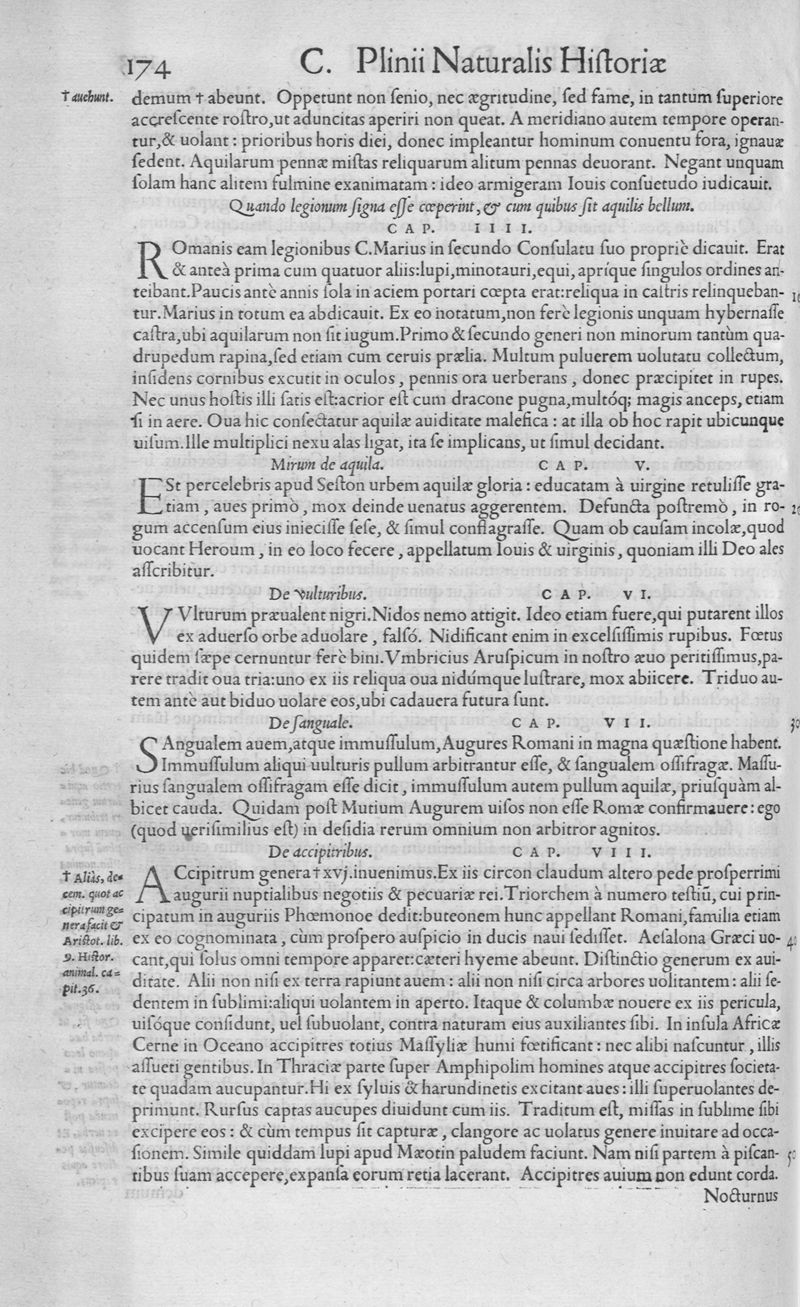 174 C. Plinii Naturalis Hiſtoriæ
† auehunt.
demum † abeunt. Oppetunt non ſenio, nec ægritudine, ſed fame, in tantum ſuperiore
accreſcente roſtro,ut aduncitas aperiri non queat. A meridiano autem tempore operan-
tur,& uolant : prioribus horis diei, donec impleantur hominum conuentu fora, ignauæ
ſedent. Aquilarum pennæ miſtas reliquarum alitum pennas deuorant. Negant unquam
ſolam hanc alitem fulmine exanimatam : ideo armigeram Iouis conſuetudo iudicauit.
Quando legionum ſigna eſſe cœperint, & cum quibus ſit aquilis bellum.
CAP. IIII.
ROmanis eam legionibus C.Marius in ſecundo Conſulatu ſuo propriè dicauit. Erat
& anteà prima cum quatuor aliis:lupi,minotauri,equi, apríque ſingulos ordines an-
teibant.Paucis antè annis ſola in aciem portari cœpta erat:reliqua in caſtris relinqueban-
tur.Marius in totum ea abdicauit. Ex eo notatum,non ferè legionis unquam hybernaſſe
caſtra,ubi aquilarum non ſit iugum.Primo & ſecundo generi non minorum tantùm qua-
drupedum rapina,ſed etiam cum ceruis prælia. Multum puluerem uolutatu collectum,
inſidens cornibus excutit in oculos , pennis ora uerberans , donec præcipitet in rupes.
Nec unus hoſtis illi ſatis eſt:acrior eſt cum dracone pugna,multóq; magis anceps, etiam
ſi in aere. Oua hic conſectatur aquilæ auiditate malefica : at illa ob hoc rapit ubicunque
uiſum.Ille multiplici nexu alas ligat, ita ſe implicans, ut ſimul decidant.
Mirum de aquila. CAP. V.
ESt percelebris apud Seſton urbem aquilæ gloria : educatam à uirgine retuliſſe gra-
tiam , aues primò , mox deinde uenatus aggerentem. Defuncta poſtremò , in ro-
gum accenſum eius inieciſſe ſeſe, & ſimul conflagraſſe. Quam ob cauſam incolæ,quod
uocant Heroum , in eo loco fecere , appellatum Iouis & uirginis , quoniam illi Deo ales
aſſcribitur.
De vulturibus. CAP. VI.
VVlturum præualent nigri.Nidos nemo attigit. Ideo etiam fuere,qui putarent illos
ex aduerſo orbe aduolare , falſó. Nidificant enim in excelſiſſimis rupibus. Fœtus
quidem ſæpe cernuntur ferè bini.Vmbricius Aruſpicum in noſtro æuo peritiſſimus,pa-
rere tradit oua tria:uno ex iis reliqua oua nidúmque luſtrare, mox abiicere. Triduo au-
tem antè aut biduo uolare eos,ubi cadauera futura ſunt.
De ſanguale. CAP. VII.
SAngualem auem,atque immuſſulum,Augures Romani in magna quæſtione habent.
Immuſſulum aliqui uulturis pullum arbitrantur eſſe, & ſangualem oſſifragæ. Maſſu-
rius ſangualem oſſifragam eſſe dicit , immuſſulum autem pullum aquilæ, priuſquàm al-
bicet cauda. Quidam poſt Mutium Augurem uiſos non eſſe Romæ confirmauere : ego
(quod ueriſimilius eſt) in deſidia rerum omnium non arbitror agnitos.
De accipitribus. CAP. VIII.
† Aliàs, de=
cem. quot ac
cipitrum ge=
nera facit &
Ariſtot. lib.
9. Hiſtor.
animal. ca=
pit.36.
ACcipitrum genera † xvj.inuenimus.Ex iis circon claudum altero pede proſperrimi
augurii nuptialibus negotiis & pecuariæ rei.Triorchem à numero teſtiũ, cui prin-
cipatum in auguriis Phœmonoe dedit:buteonem hunc appellant Romani,familia etiam
ex eo cognominata , cùm proſpero auſpicio in ducis naui ſediſſet. Aeſalona Græci uo-
cant,qui ſolus omni tempore apparet:cæteri hyeme abeunt. Diſtinctio generum ex aui-
ditate. Alii non niſi ex terra rapiunt auem : alii non niſi circa arbores uolitantem : alii ſe-
dentem in ſublimi:aliqui uolantem in aperto. Itaque & columbæ nouere ex iis pericula,
uiſóque conſidunt, uel ſubuolant, contra naturam eius auxiliantes ſibi. In inſula Africæ
Cerne in Oceano accipitres totius Maſſyliæ humi fœtificant : nec alibi naſcuntur , illis
aſſueti gentibus. In Thraciæ parte ſuper Amphipolim homines atque accipitres ſocieta-
te quadam aucupantur.Hi ex ſyluis & harundinetis excitant aues : illi ſuperuolantes de-
primunt. Rurſus captas aucupes diuidunt cum iis. Traditum eſt, miſſas in ſublime ſibi
excipere eos : & cùm tempus ſit capturæ , clangore ac uolatus genere inuitare ad occa-
ſionem. Simile quiddam lupi apud Mæotin paludem faciunt. Nam niſi partem à piſcan-
tibus ſuam accepere,expanſa eorum retia lacerant. Accipitres auium non edunt corda.
Nocturnus